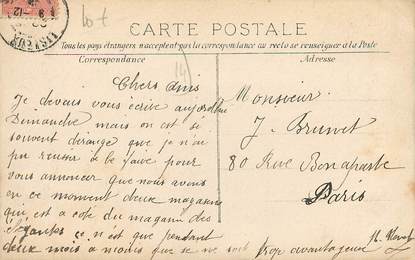 lot
CARTE POSTALE
Tous les pays étrangers n'acceptent pas la correspondance au recto se renseigner à la Poste
Correspondance
Adresse
Chers Amis
Je devais vous écrire aujourdhui
Dimanche mais on est si
souvent dérangé que je n'ai
pu reussir a le faire pour
vous annoncer que nous avons
en ce moment deux magasins
qui est a coté du magasin des
ce n'est que pendant
deux mois a moins que se ne soit trop avantageux
Monsieur
J. Brunet
80 Rue Bonaparte
Paris